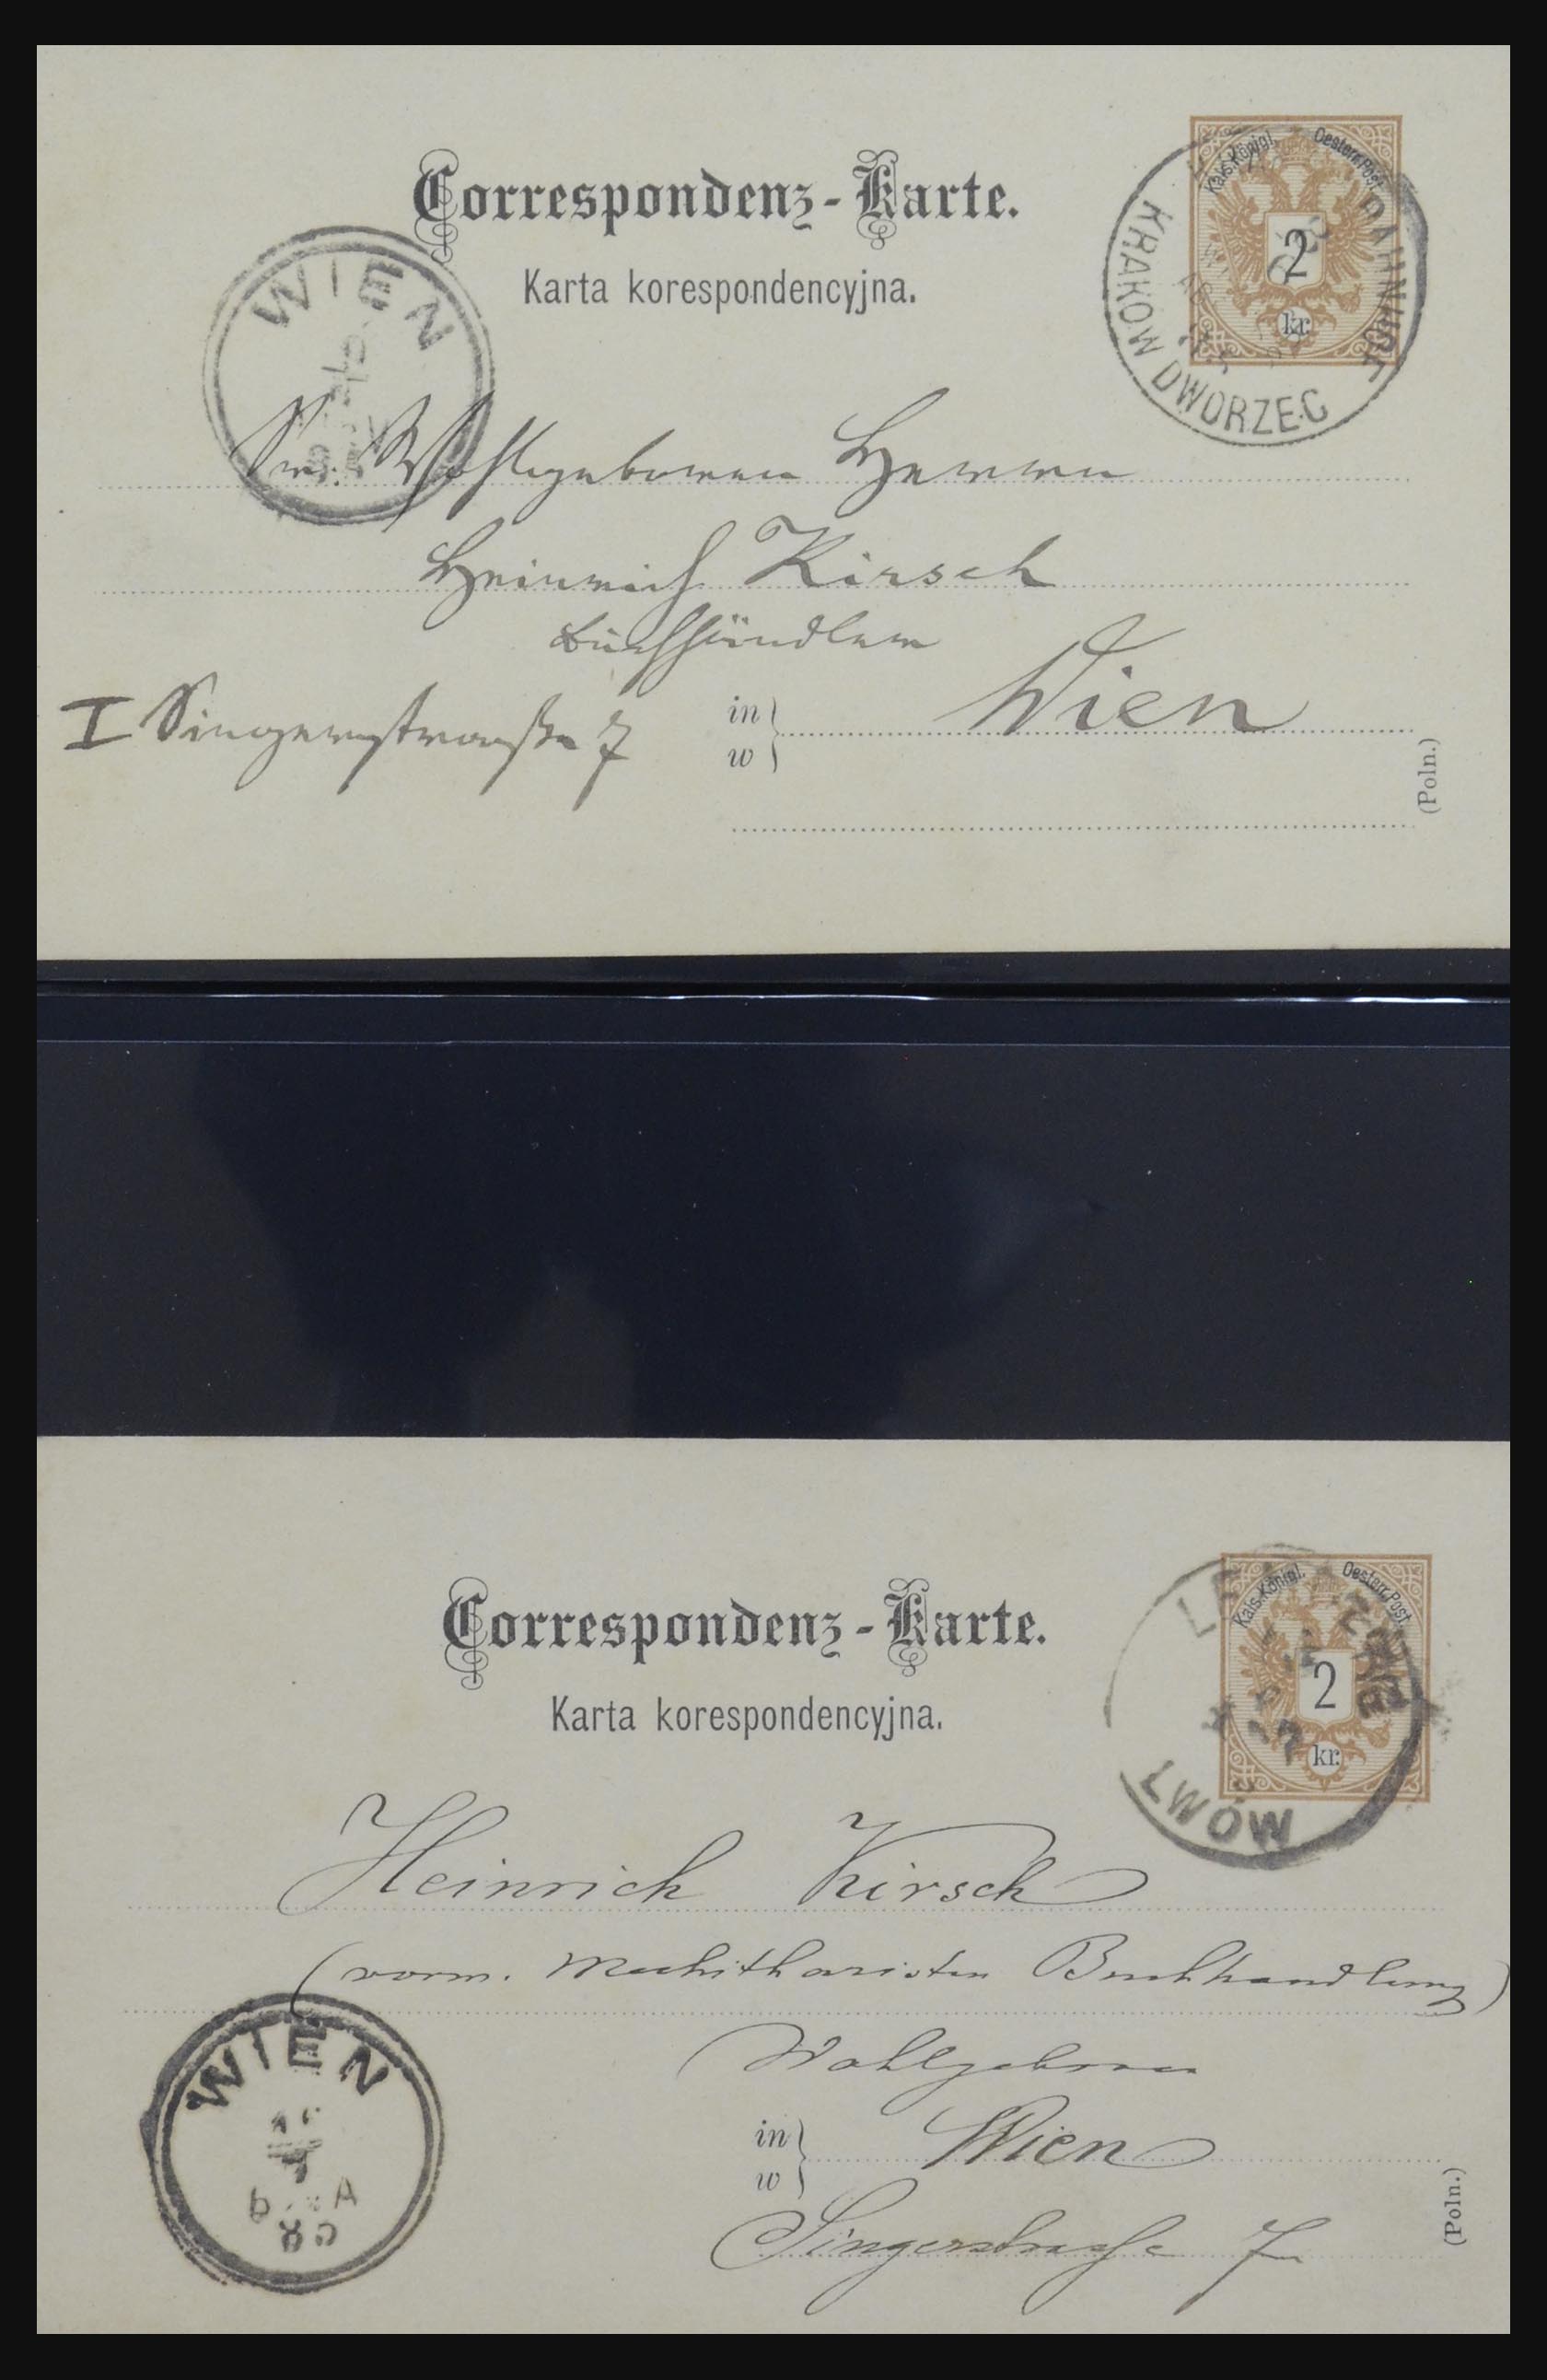 Correspondenz-Karte.
Kais. Königl. Oesterr. Post
2
kr.
Karta korespondencyjna.
KRAKOW DWORZEC BAHNHOF
WIEN
Sr. Wohlgeboren Herrn
Heinrich Kirsch
Buchhändler
I Singerstraße 7
in
w
Wien
(Poln.)
Correspondenz-Karte.
Kais. Königl. Oesterr. Post
2
kr.
Karta korespondencyjna.
LWÓW
Heinrich Kirsch
(vorm. Mechitharisten Buchhandlung)
Wohlgeboren
WIEN
in
w
Wien
Singerstrasse 7
(Poln.)